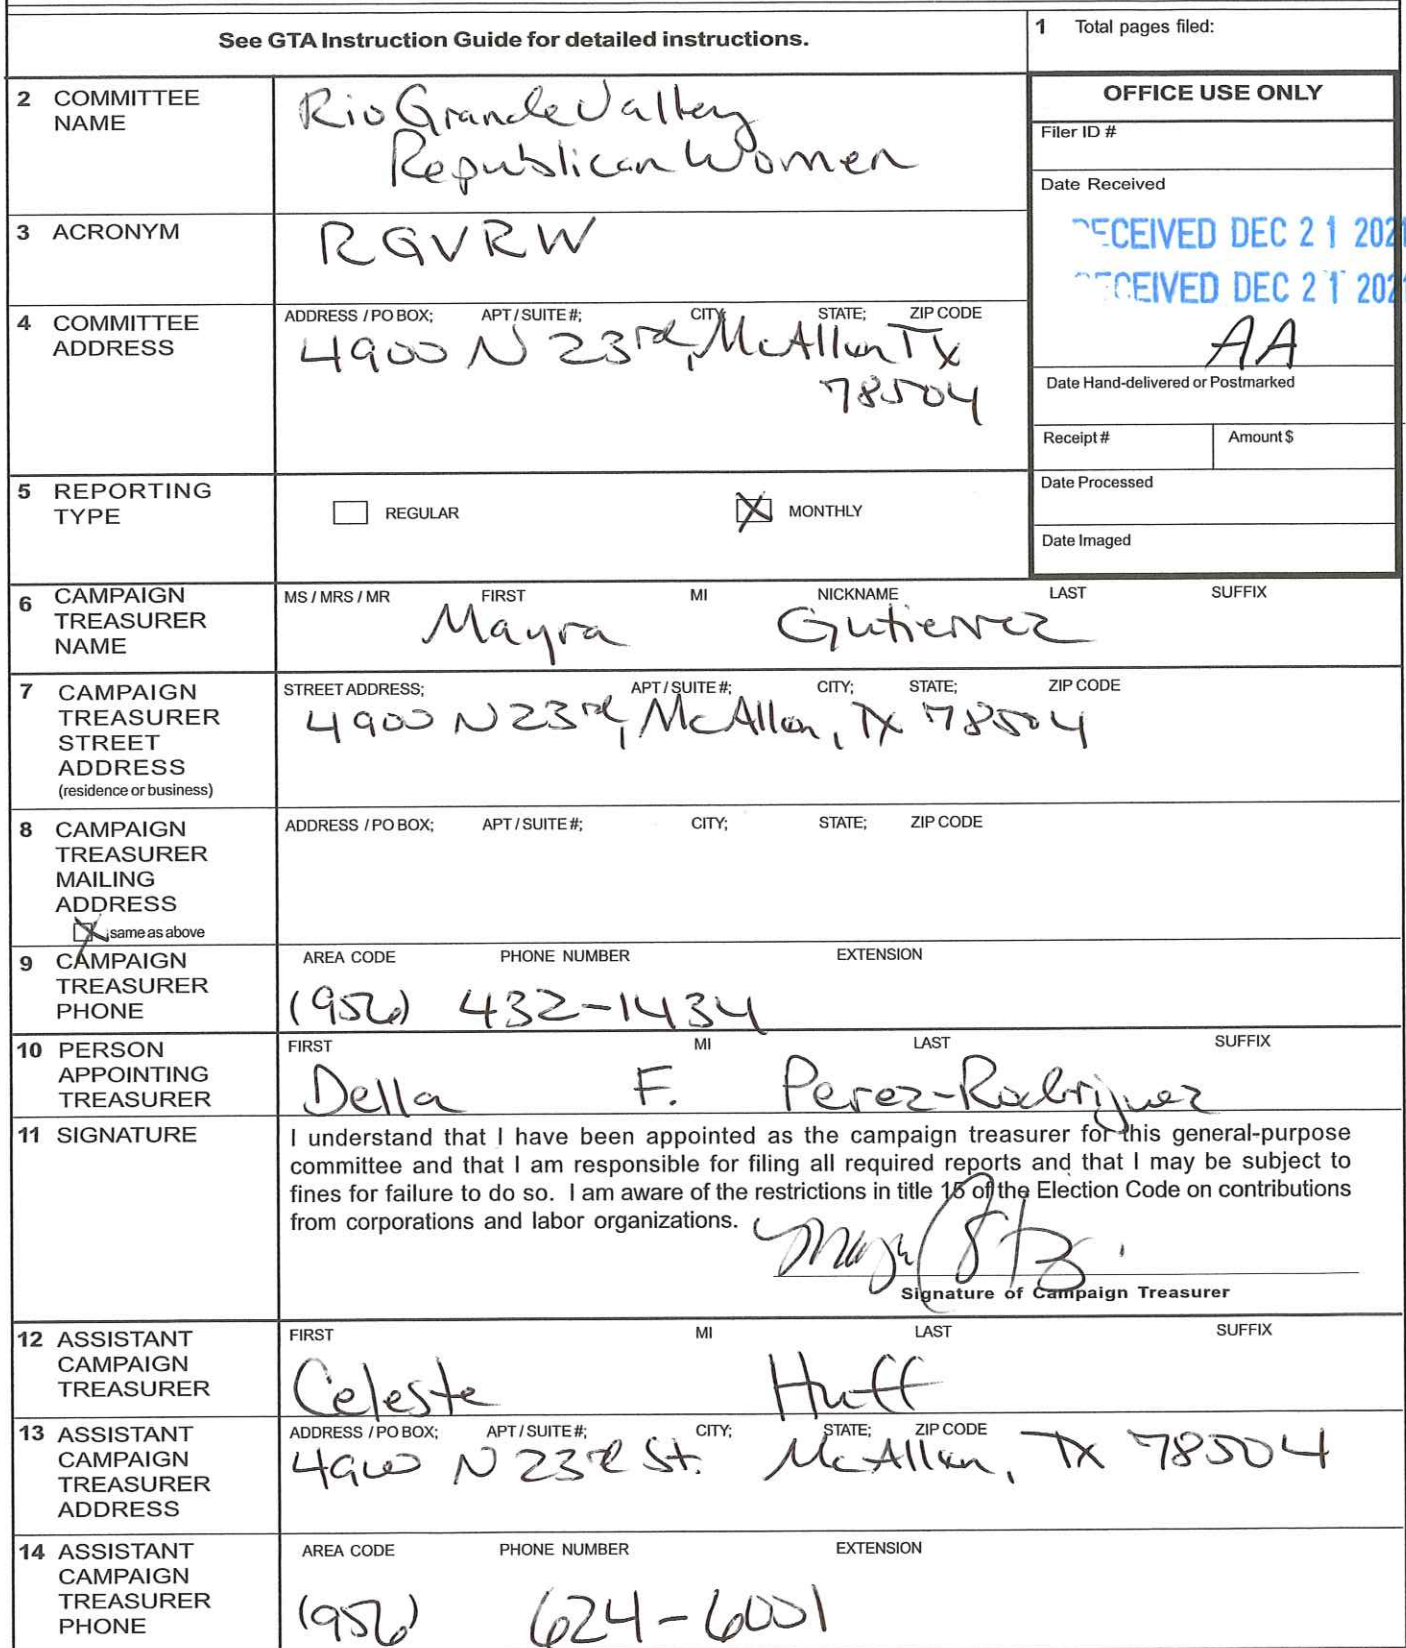 See GTA Instruction Guide for detailed instructions.
1 Total pages filed:
OFFICE USE ONLY
Filer ID #
Date Received
RECEIVED DEC 21 2021
RECEIVED DEC 21 2021
AA
Date Hand-delivered or Postmarked
Receipt # Amount $
Date Processed
Date Imaged
2 COMMITTEE
NAME
Rio Grande Valley
Republican Women
3 ACRONYM
RGVRW
4 COMMITTEE
ADDRESS
ADDRESS / PO BOX; APT / SUITE #; CITY; STATE; ZIP CODE
4900 N 23rd, McAllen Tx
78504
5 REPORTING
TYPE
REGULAR
MONTHLY
6 CAMPAIGN
TREASURER
NAME
MS / MRS / MR FIRST MI NICKNAME LAST SUFFIX
Mayra Gutierrez
7 CAMPAIGN
TREASURER
STREET
ADDRESS
(residence or business)
STREET ADDRESS; APT / SUITE #; CITY; STATE; ZIP CODE
4900 N 23rd, McAllen, TX 78504
8 CAMPAIGN
TREASURER
MAILING
ADDRESS
same as above
ADDRESS / PO BOX; APT / SUITE #; CITY; STATE; ZIP CODE
9 CAMPAIGN
TREASURER
PHONE
AREA CODE PHONE NUMBER EXTENSION
(956) 432-1434
10 PERSON
APPOINTING
TREASURER
FIRST MI LAST SUFFIX
Della F. Perez-Rodriguez
11 SIGNATURE
I understand that I have been appointed as the campaign treasurer for this general-purpose
committee and that I am responsible for filing all required reports and that I may be subject to
fines for failure to do so. I am aware of the restrictions in title 15 of the Election Code on contributions
from corporations and labor organizations.
Signature of Campaign Treasurer
12 ASSISTANT
CAMPAIGN
TREASURER
FIRST MI LAST SUFFIX
Celeste Huff
13 ASSISTANT
CAMPAIGN
TREASURER
ADDRESS
ADDRESS / PO BOX; APT / SUITE #; CITY; STATE; ZIP CODE
4900 N 23rd St. McAllen, TX 78504
14 ASSISTANT
CAMPAIGN
TREASURER
PHONE
AREA CODE PHONE NUMBER EXTENSION
(956) 624-6001